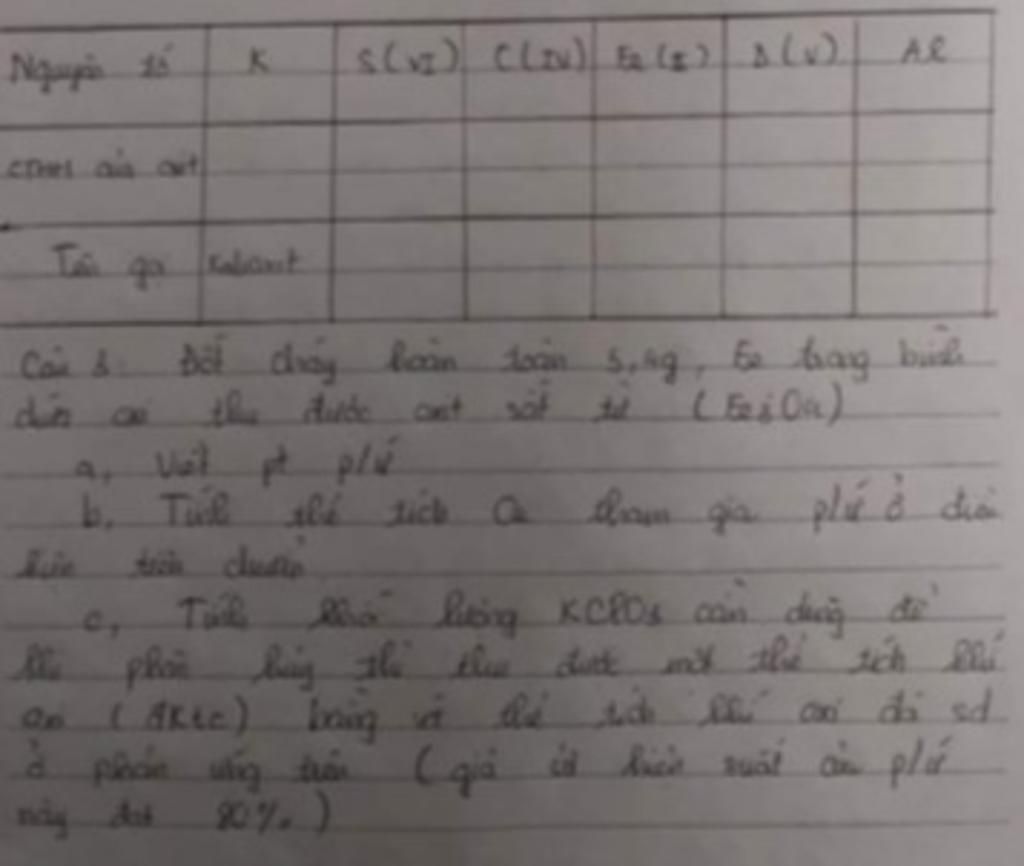 Nguyên tố K S(VI) C(IV) Fe(II) P(V) Al
CTHH của oxit
Tên gọi Kalioxit
Câu 3: Đốt cháy hoàn toàn 8,4g, Fe trong bình
đựng oxi thu được oxit sắt từ (Fe3O4)
a, Viết pt p/ứ
b, Tính thể tích O2 tham gia p/ứ ở điều
kiện tiêu chuẩn
c, Tính khối lượng KClO3 cần dùng để
khi phân hủy thì thu được một thể tích khí
oxi (đktc) bằng với thể tích khí oxi đã sd
ở phản ứng trên (giả sử hiệu suất của p/ứ
này đạt 80%.)